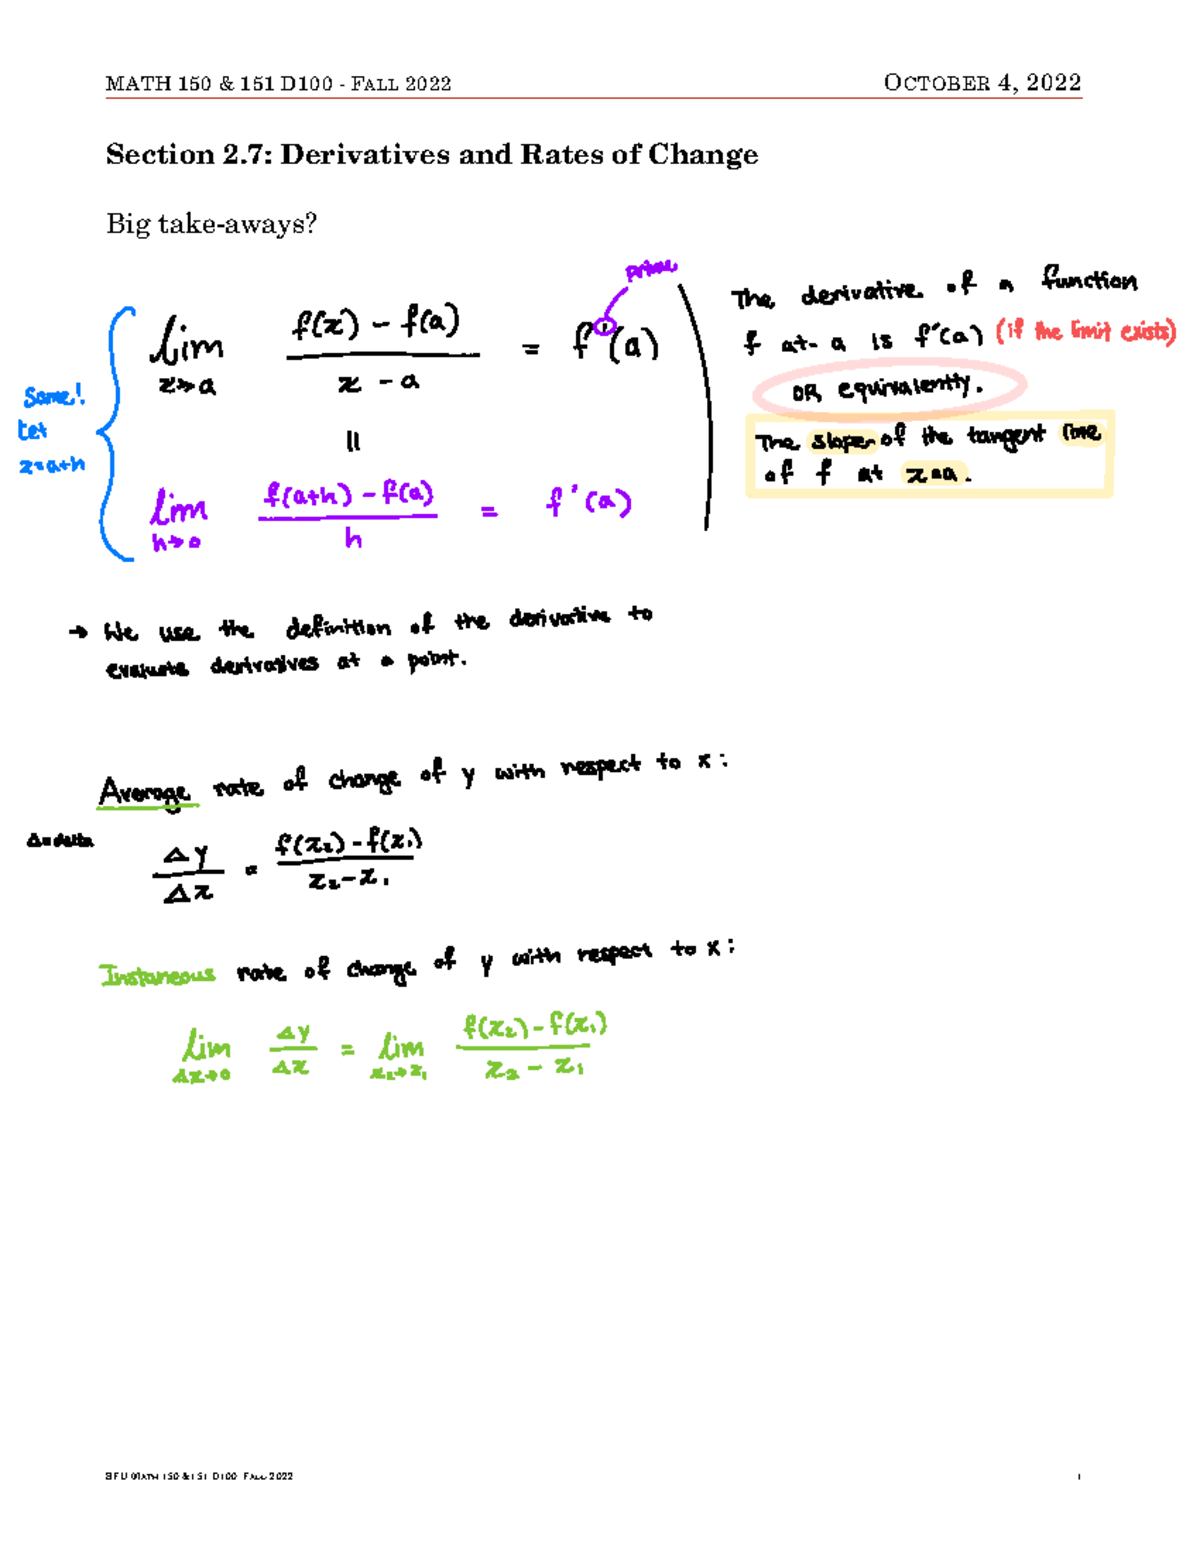 MATH 150 & 151 D100 - FALL 2022 OCTOBER 4, 2022
Section 2.7: Derivatives and Rates of Change
Big take-aways?
prime
lim x→a f(x) - f(a) / x - a = f'(a)
Same!
Let
x=a+h
=
lim h→0 f(a+h) - f(a) / h = f'(a)
The derivative of a function
f at a is f'(a) (if the limit exists)
OR equivalently.
The slope of the tangent line
of f at x=a.
→ We use the definition of the derivative to
evaluate derivatives at a point.
Average rate of change of y with respect to x:
Δ=delta
Δy / Δx = f(x₂) - f(x₁) / x₂ - x₁
Instaneous rate of change of y with respect to x:
lim Δx→0 Δy / Δx = lim x₂→x₁ f(x₂) - f(x₁) / x₂ - x₁
SFU MATH 150 & 151 D100 FALL 2022 1